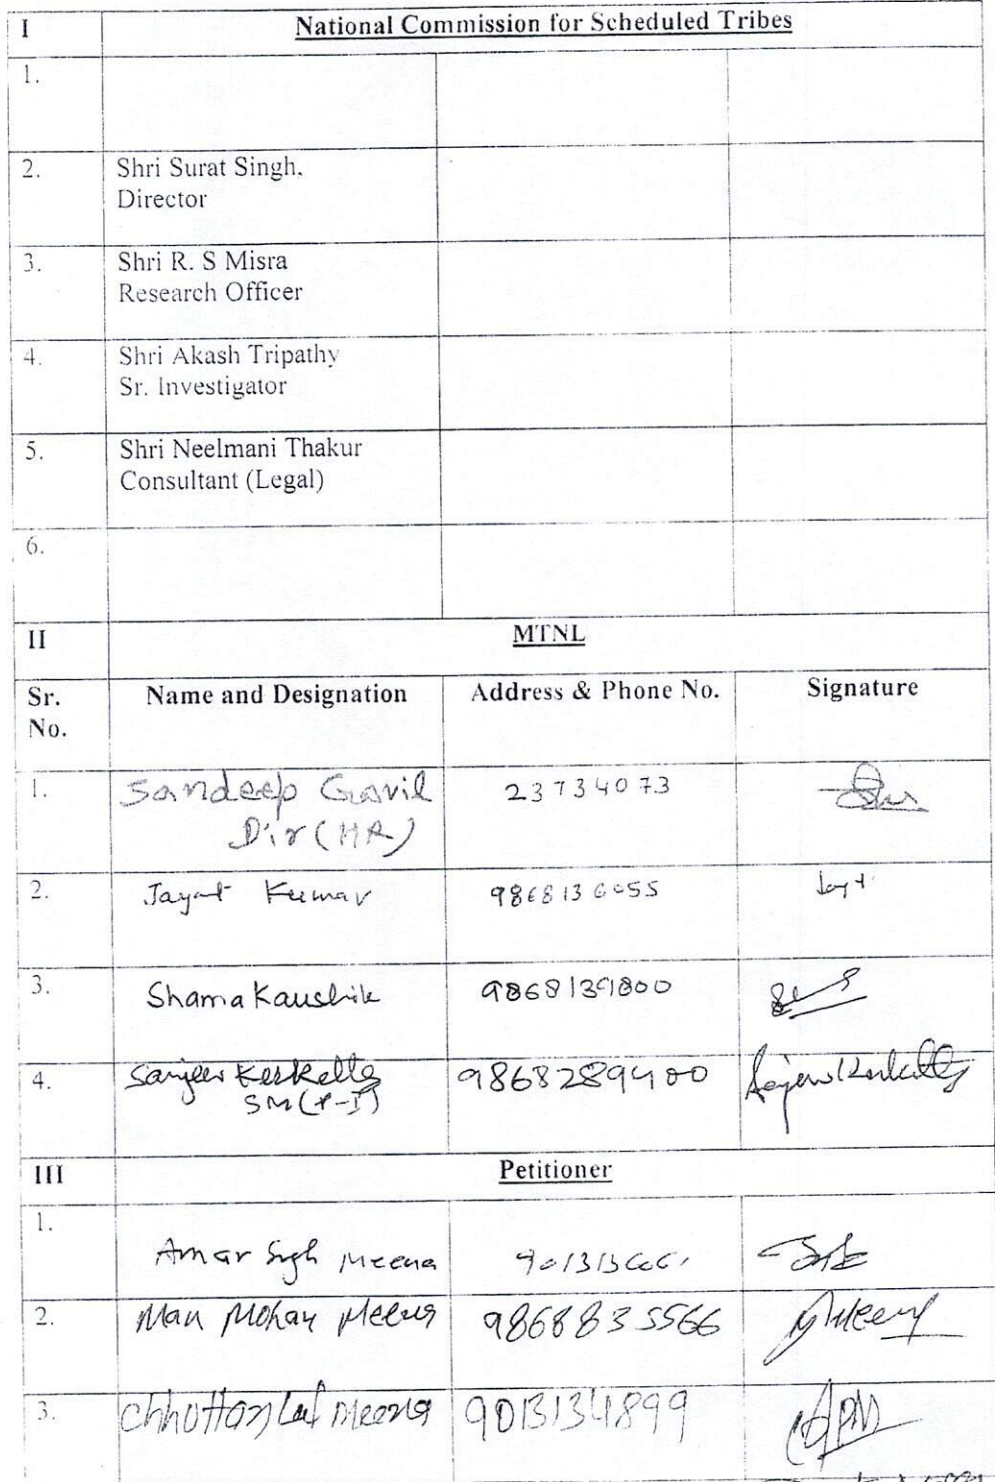 I National Commission for Scheduled Tribes
1.
2. Shri Surat Singh,
Director
3. Shri R. S Misra
Research Officer
4. Shri Akash Tripathy
Sr. Investigator
5. Shri Neelmani Thakur
Consultant (Legal)
6.
II MTNL
Sr. Name and Designation Address & Phone No. Signature
No.
1. Sandeep Govil 23734073
Dir (HR)
2. Jayant Kumar
3. Shama Kaushik 9868139800
4. Sanjeev Kerketta 9868289400 Sanjeev Kerketta
III Petitioner
1.
Amar Singh Meena
2. Man Mohan Meena 9868835566
3. Chhottan Lal Meena 9013134899